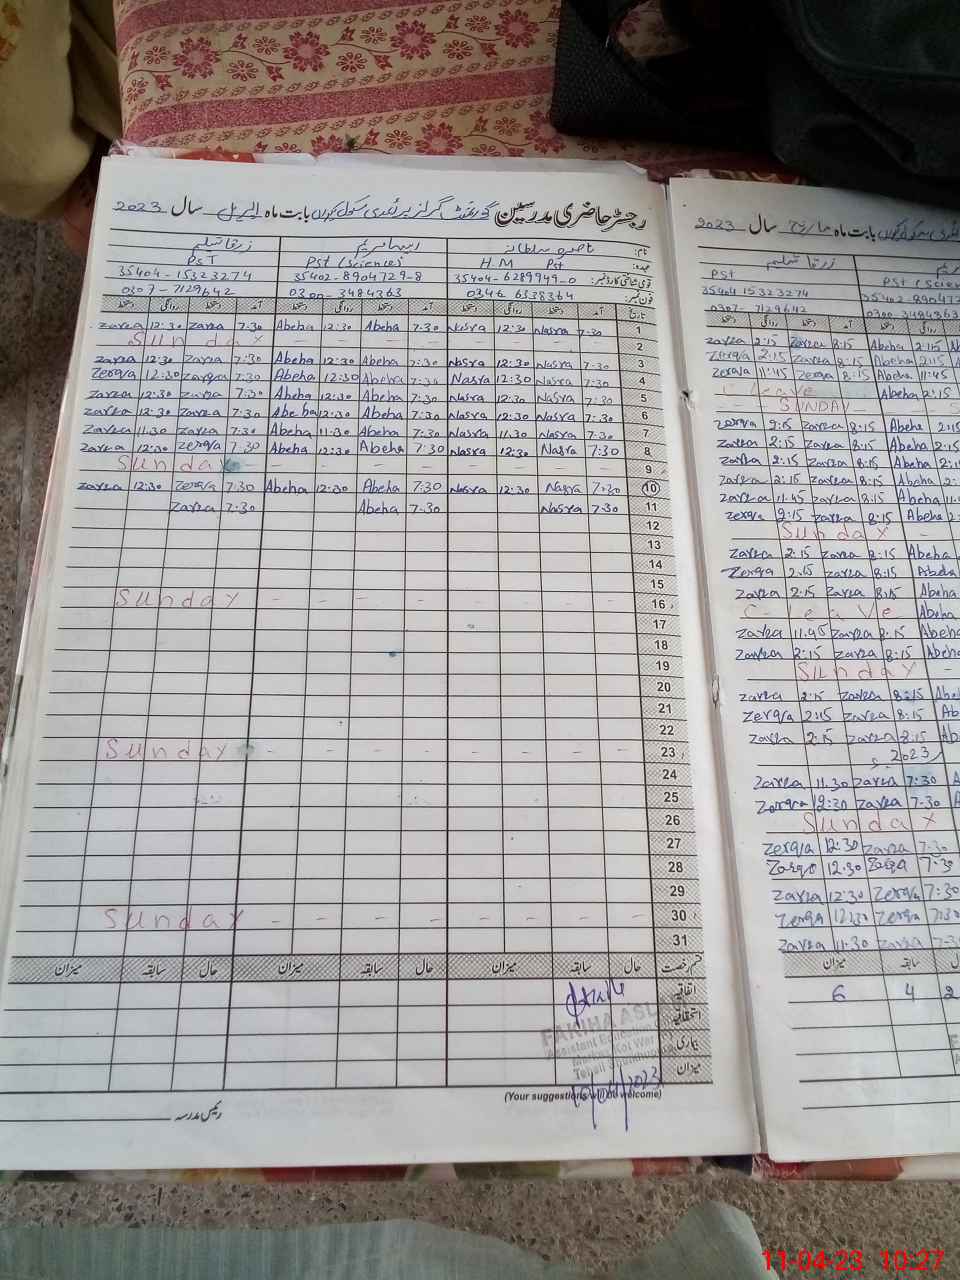 رجسٹر حاضری مدرسین گورنمنٹ گرلز پرائمری سکول بابت ماہ اپریل سال 2023
نام: ناصرہ سلطانہ زرقا تسلیم
عہدہ: H.M Pst Pst (Science) PST
قومی شناختی کارڈ نمبر: 35404-6289949-0 35402-8904729-8 35404-15323274
فون نمبر: 0346 6538364 0300-3484363 0307-7129642
تاریخ آمد دستخط روانگی دستخط آمد دستخط روانگی دستخط آمد دستخط روانگی دستخط
zarqa 12:30 zarqa 7-30 Abeha 12:30 Abeha 7-30 Nasra 12:30 Nasra 7-30 1
Sunday - - - - - - - - 2
zarqa 12:30 zarqa 7:30 Abeha 12:30 Abeha 7:30 Nasra 12:30 Nasra 7-30 3
Zerqa 12:30 zarqa 7:30 Abeha 12:30 Abeha 7-30 Nasra 12:30 Nasra 7-30 4
zarqa 12:30 zarqa 7:30 Abeha 12:30 Abeha 7:30 Nasra 12:30 Nasra 7:30 5
zarqa 12:30 zarqa 7:30 Abeha 12:30 Abeha 7:30 Nasra 12:30 Nasra 7:30 6
zarqa 11.30 zarqa 7:30 Abeha 11-30 Abeha 7:30 Nasra 11.30 Nasra 7-30 7
zarqa 12:30 zerqa 7.30 Abeha 12:30 Abeha 7:30 Nasra 12:30 Nasra 7:30 8
Sunday - - - - - - - - 9
zarqa 12:30 zerqa 7:30 Abeha 12:30 Abeha 7:30 Nasra 12:30 Nasra 7:30 10
zarqa 7-30 Abeha 7-30 Nasra 7-30 11
12
13
14
15
Sunday - - - - - - - - 16
17
18
19
20
21
22
Sunday - - - - - - - - 23
24
25
26
27
28
29
Sunday - - - - - - - - 30
31
قسم رخصت حال سابقہ میزان حال سابقہ میزان حال سابقہ میزان
اتفاقیہ
استحقاقیہ
بیماری
میزان
FAKIHA ASLAM
Assistant Education
Markaz Kot War
Tehsil
10/04/2023
(Your suggestions will be welcome)
رئیس مدرسہ
بابت ماہ مارچ سال 2023
زرقا تسلیم
PST Pst (Scien
35404 15323274 35402-890472
0307-7129642 0300 3484363
آمد دستخط روانگی دستخط
zarqa 2:15 zarqa 8:15 Abeha 2:15
Zerqa 2:15 zarqa 8:15 Abeha 2:15
zerqa 11:45 zerqa 8:15 Abeha 11:45
C leave Abeha 2:15
SUNDAY
zerqa 2:15 zarqa 8:15 Abeha 2:15
zarqa 2:15 zarqa 8:15 Abeha 2:15
zarqa 2:15 zarqa 8:15 Abeha 2:
zarqa 2:15 zarqa 8:15 Abeha 2:
zarqa 11.45 zarqa 8:15 Abeha 11
zerqa 2:15 zarqa 8:15 Abeha 2
Sunday -
zarqa 2:15 zarqa 8:15 Abeha
Zerqa 2.15 zarqa 8:15 Abeha
zarqa 2:15 zarqa 8:15 Abeha
C-leave Abeha
zarqa 11.45 zarqa 8:15 Abeha
zarqa 2:15 zarqa 8:15 Abeha
Sunday -
zarqa 2:15 zarqa 8:15 Abeh
zerqa 2:15 zarqa 8:15 Ab
zarqa 2:15 zarqa 8:15 Ab
2023
zarqa 11.30 zarqa 7:30 A
zerqa 12:30 zarqa 7-30 A
Sunday
zerqa 12:30 zarqa 7-30
Zarqa 12.30 Zarqa 7.30
zarqa 12:30 Zerqa 7:30
Zerqa 12:30 Zerqa 7:30
zarqa 11-30 zarqa 7-3
میزان سابقہ
6 4 2
11-04-23 10:27